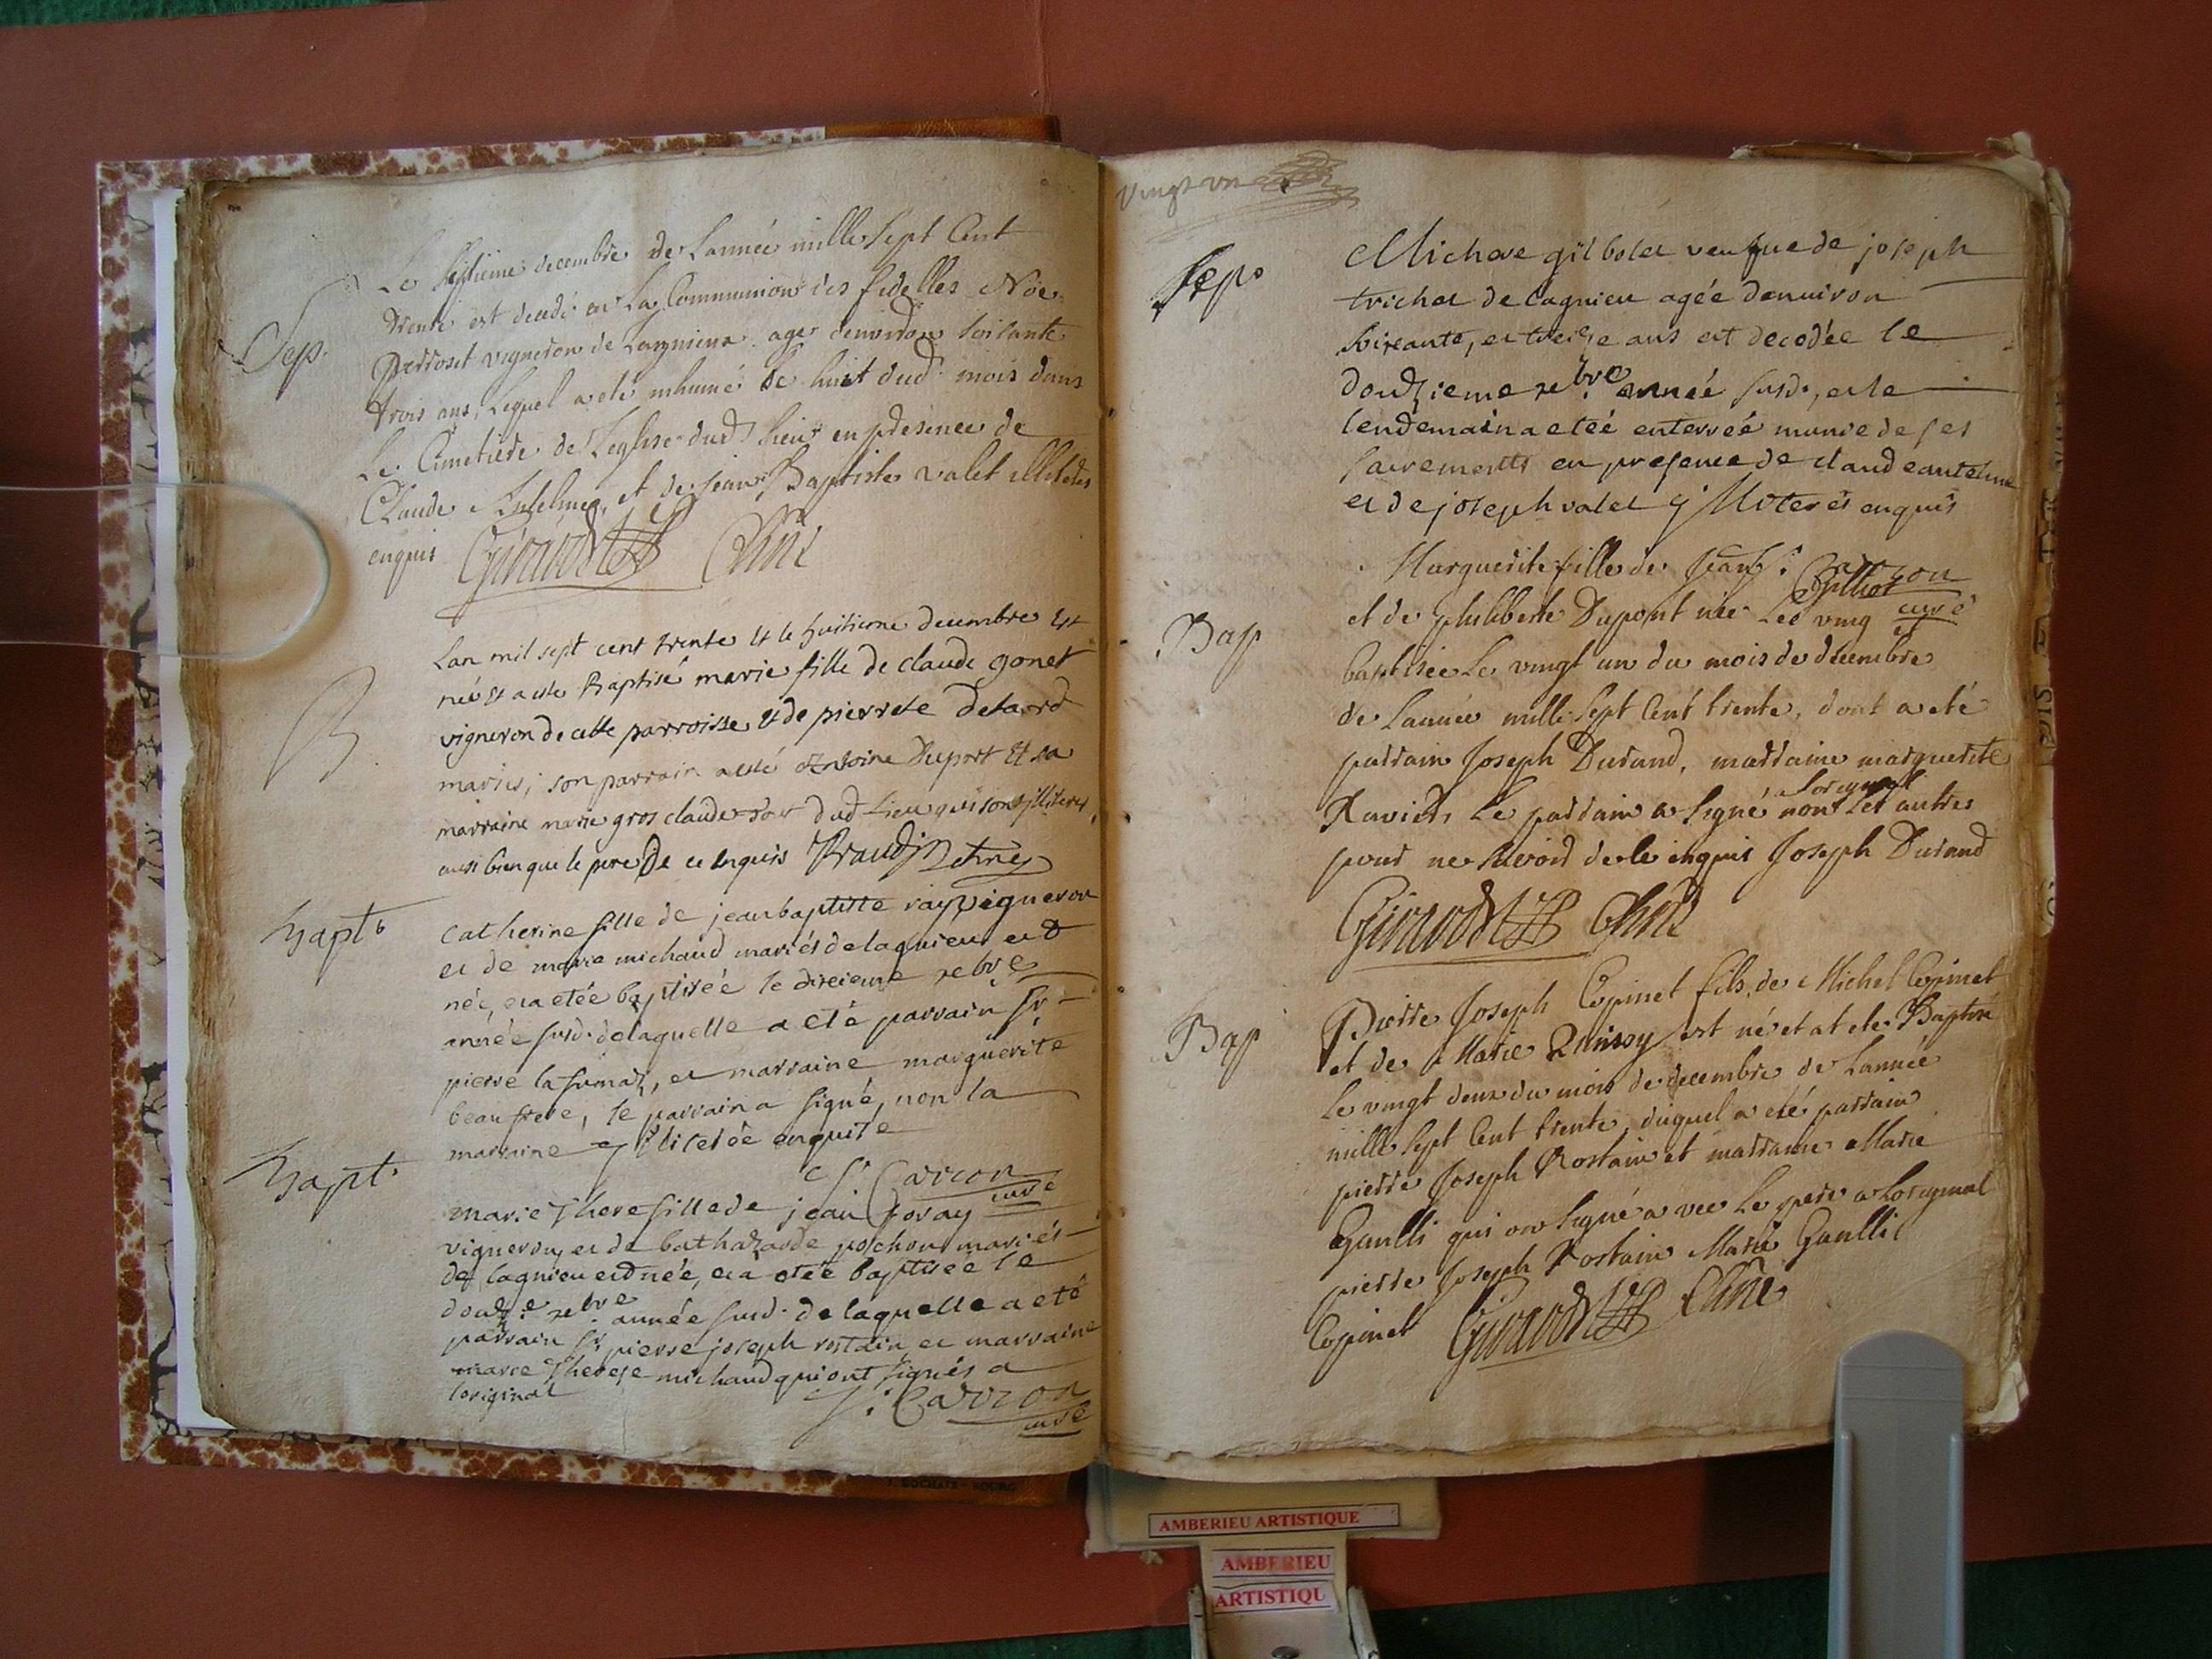 Sep.
Le septieme decembre de Lannée mille sept Cent
trente est decedé en La Communion des fidelles Noe
perroset vigneron de Lagnieux agé denviron soisante
trois ans, Lequel a eté inhumé le huit dud. mois dans
Le Cimetiere de Leglise dud. Lieu en presence de
Claude Antelme, et de jean Baptiste valet illiteres
enquis Giraud
B
Lan mil sept cent trente et le huitieme decembre est
née et a este Baptisé marie fille de claude gonet
vigneron de cette parroisse et de pierrete
mariés; son parrain a esté Antoine Duport et sa
marraine marie gros claude dud Lieu qui sont illiteres
aussi bien que le pere De ce enquis
bapt.
catherine fille de jean baptiste ray vigneron
et de marie michaud mariés de lagnieu est
née, et a etée baptisée le dixieme xebre
année susd. de laquelle a eté parrain sr
pierre la , et marraine marguerite
beau frere, le parrain a signé, non la
marraine illiterée enquise
Carron
curé
bapt.
marie these fille de jean foray
vigneron, et de bathazarde pochon mariés
de lagnieu est née, et a etée baptisée le
douze. xebre année susd. de laquelle a eté
parrain sr pierre joseph rostain et marraine
marie therese michaud qui ont signés a
loriginal
Carron
curé
vingt un
Sep.
Michere gilbolet veufue de joseph
trichet de lagnieu agée denuiron
soixante, et treize ans est decedée le
douzieme xebre année susd., et le
lendemain a etée enterrée munie de ses
sacrements en presence de claude antelme
et de joseph valet illiterés enquis
Carron
curé
Bap
Marguerite fille de Jean f. Balliot
et de philiberte Dupont née Le vingt et
baptisée Le vingt un du mois de decembre
de Lannée mille sept Cent trente, dont a eté
parrain Joseph Durand, marraine marguerite
Xavier, Le parrain a signé Loriginal non Les autres
pour ne sçavoir de le enquis Joseph Durand
Giraud
Bap
Pierre Joseph Copinet fils de Michel Copinet
et de Marie Quinsoy est né et at ete Baptisé
Le vingt deux du mois de decembre de Lannée
mille sept Cent trente, duquel a eté parrain
pierre Joseph Rostain et marraine Marie
Gaulli qui on signé a vec Le pere a Loriginal
pierre Joseph Rostain Marie Gaulli
Copinet Giraud
AMBERIEU ARTISTIQUE
AMBERIEU
ARTISTIQU